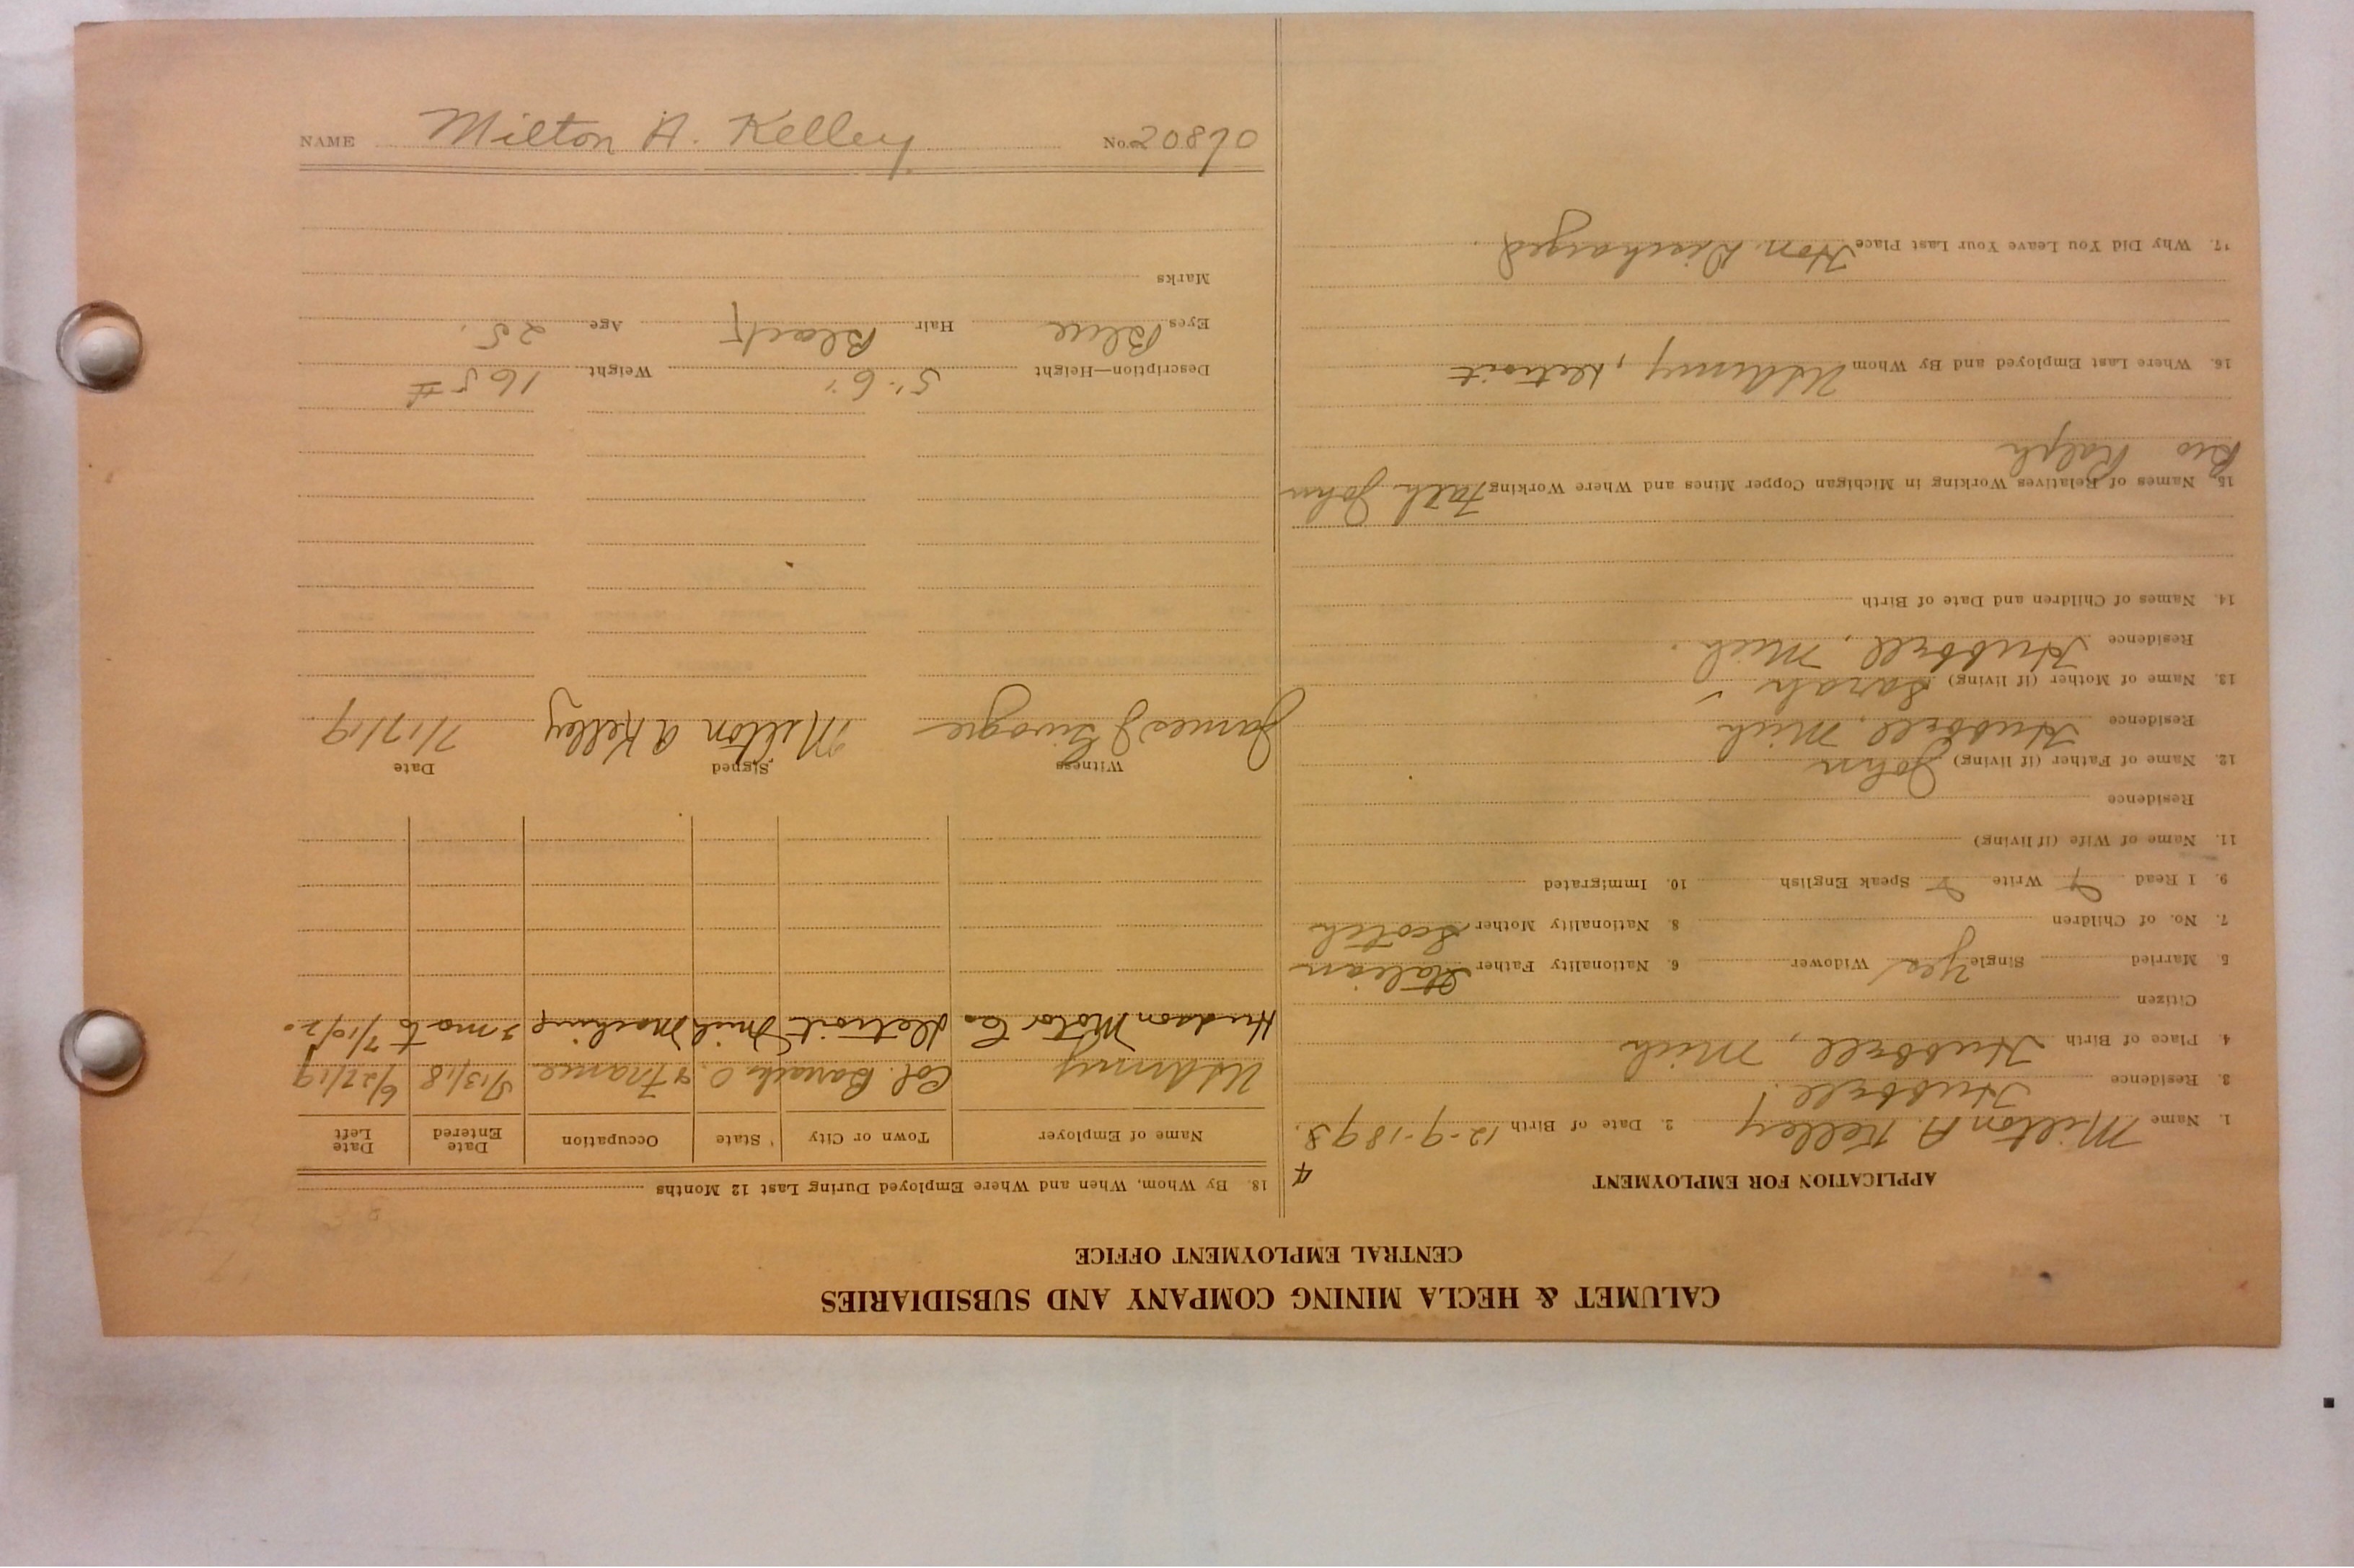 CALUMET & HECLA MINING COMPANY AND SUBSIDIARIES
CENTRAL EMPLOYMENT OFFICE
APPLICATION FOR EMPLOYMENT
1. Name Milton A. Kelley 2. Date of Birth 12-9-1893.
4
3. Residence Hubbell.
4. Place of Birth Hubbell, Mich
Citizen
5. Married Single Yes Widower 6. Nationality Father Italian
7. No. of Children 8. Nationality Mother Scotch
9. I Read Write Speak English 10. Immigrated
11. Name of Wife (if living)
Residence
12. Name of Father (if living) John
Residence Hubbell, Mich
13. Name of Mother (if living) Sarah
Residence Hubbell, Mich.
14. Names of Children and Date of Birth
15. Names of Relatives Working in Michigan Copper Mines and Where Working Fath John
Bro Ralph
16. Where Last Employed and By Whom US Army, Detroit
17. Why Did You Leave Your Last Place Hon. Discharged
18. By Whom, When and Where Employed During Last 12 Months
Name of Employer Town or City State Occupation Date Entered Date Left
US Army Col. Barracks O. & France 5/13/18 6/27/19
Hudson Motor Co Detroit Mich Machine 2 mo to 7/10/20
Witness Signed Date
James J Milton A Kelley 7/17/19
Description—Height 5' 6" Weight 165 #
Eyes Blue Hair Black Age 25.
Marks
NAME Milton A. Kelley No. 20890